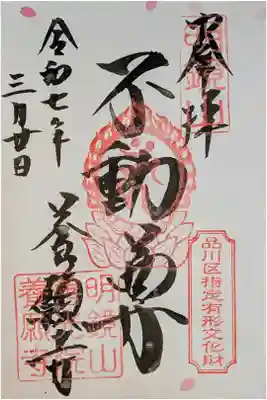 奉拝
品川区指定有形文化財
不動尊
養願寺
明鏡山
養願寺
令和七年
三月廿日